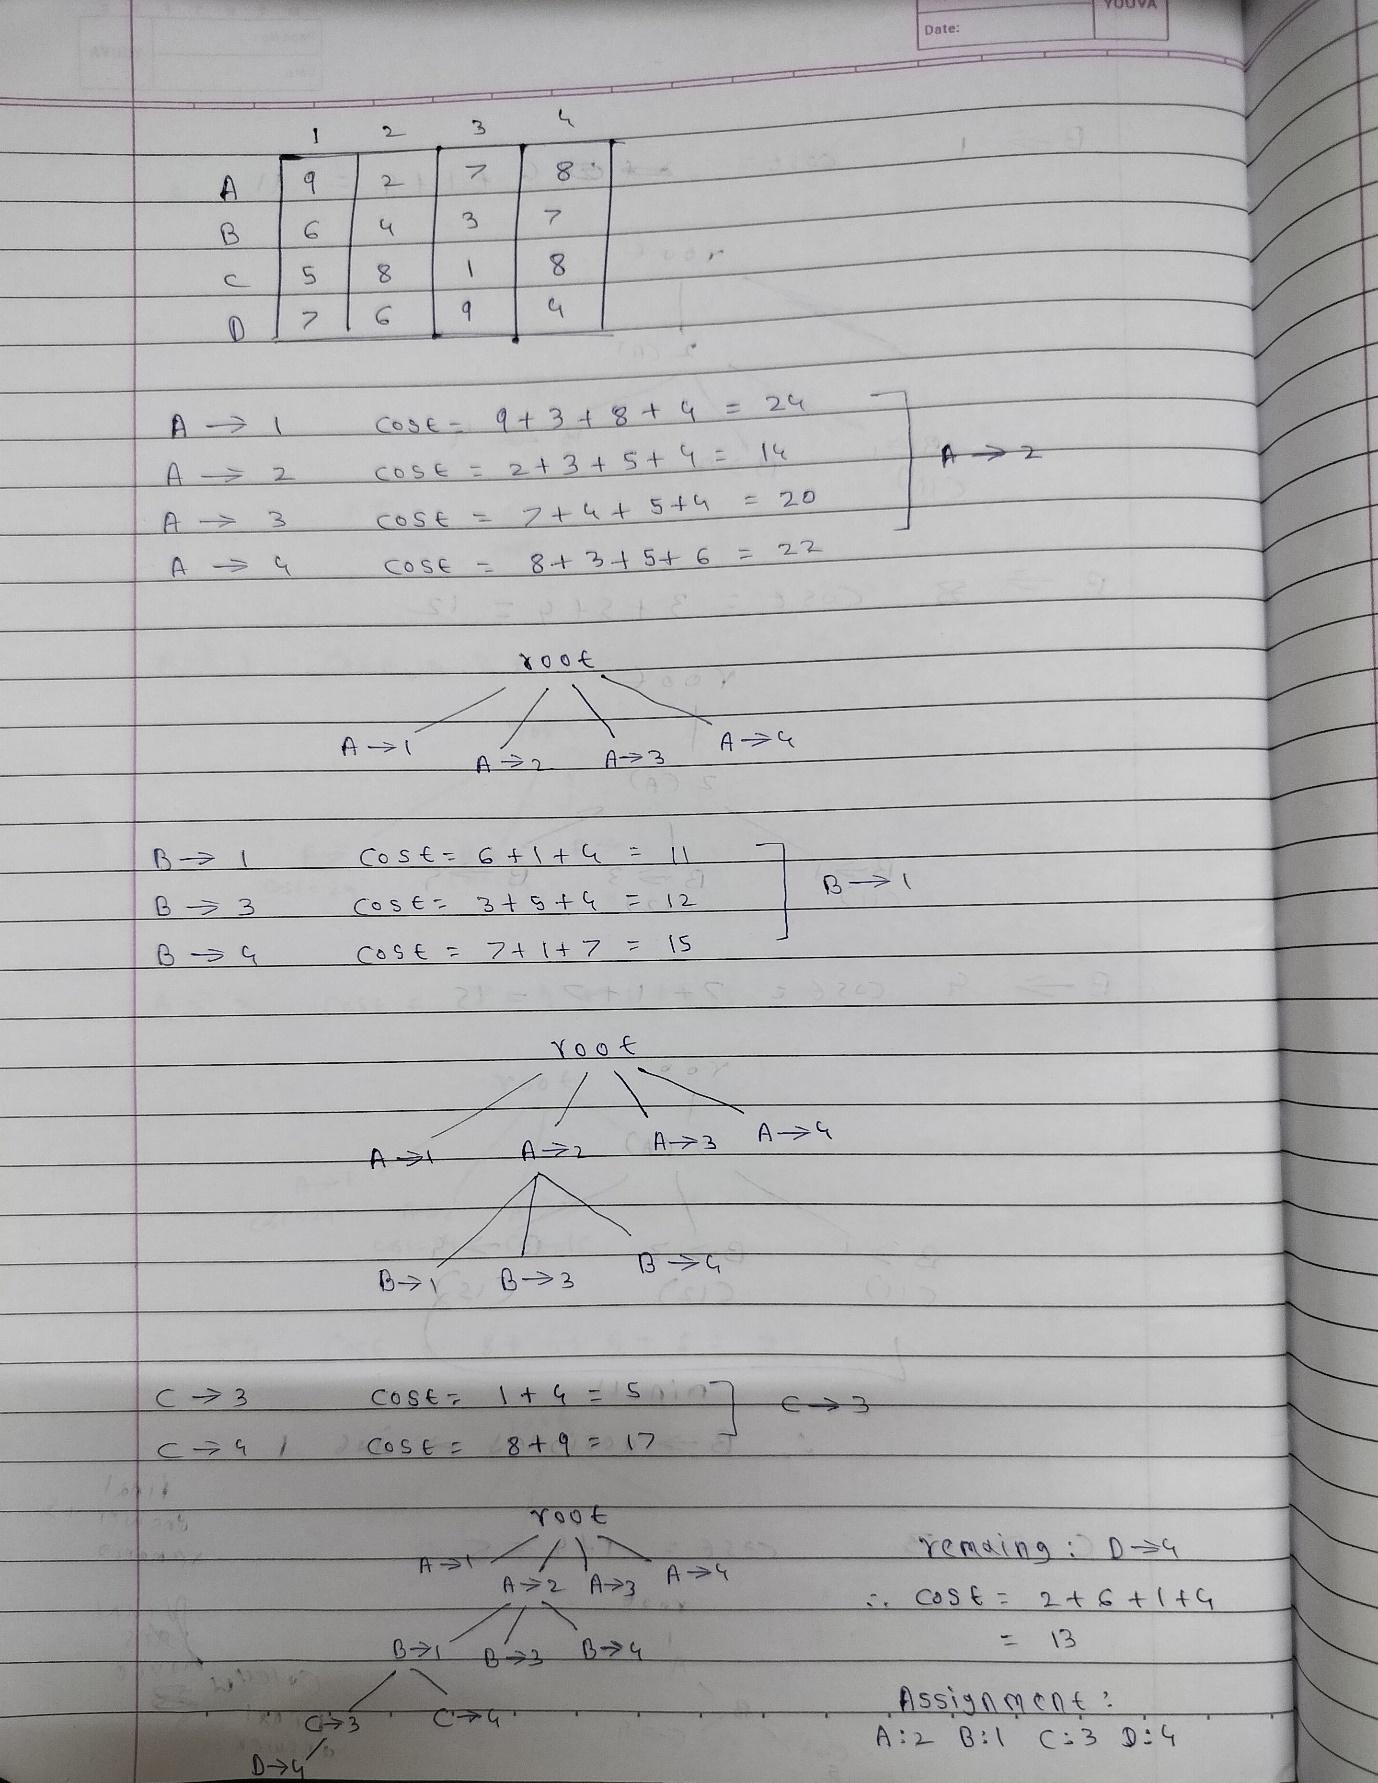 YOUVA
Date:
1 2 3 4
A 9 2 7 8
B 6 4 3 7
C 5 8 1 8
D 7 6 9 4
A → 1 cost = 9+3+8+4 = 24
A → 2 cost = 2+3+5+4 = 14
A → 2
A → 3 cost = 7+4+5+4 = 20
A → 4 cost = 8+3+5+6 = 22
root
A→1 A→2 A→3 A→4
B → 1 cost = 6+1+4 = 11
B → 1
B → 3 cost = 3+5+4 = 12
B → 4 cost = 7+1+7 = 15
root
A→1 A→2 A→3 A→4
B→1 B→3 B→4
C → 3 cost = 1+4 = 5
C → 3
C → 4 cost = 8+9 = 17
root
A→1 A→2 A→3 A→4
B→1 B→3 B→4
C→3 C→4
D→4
remaing : D→4
∴ cost = 2+6+1+4
= 13
Assignment :
A:2 B:1 C:3 D:4